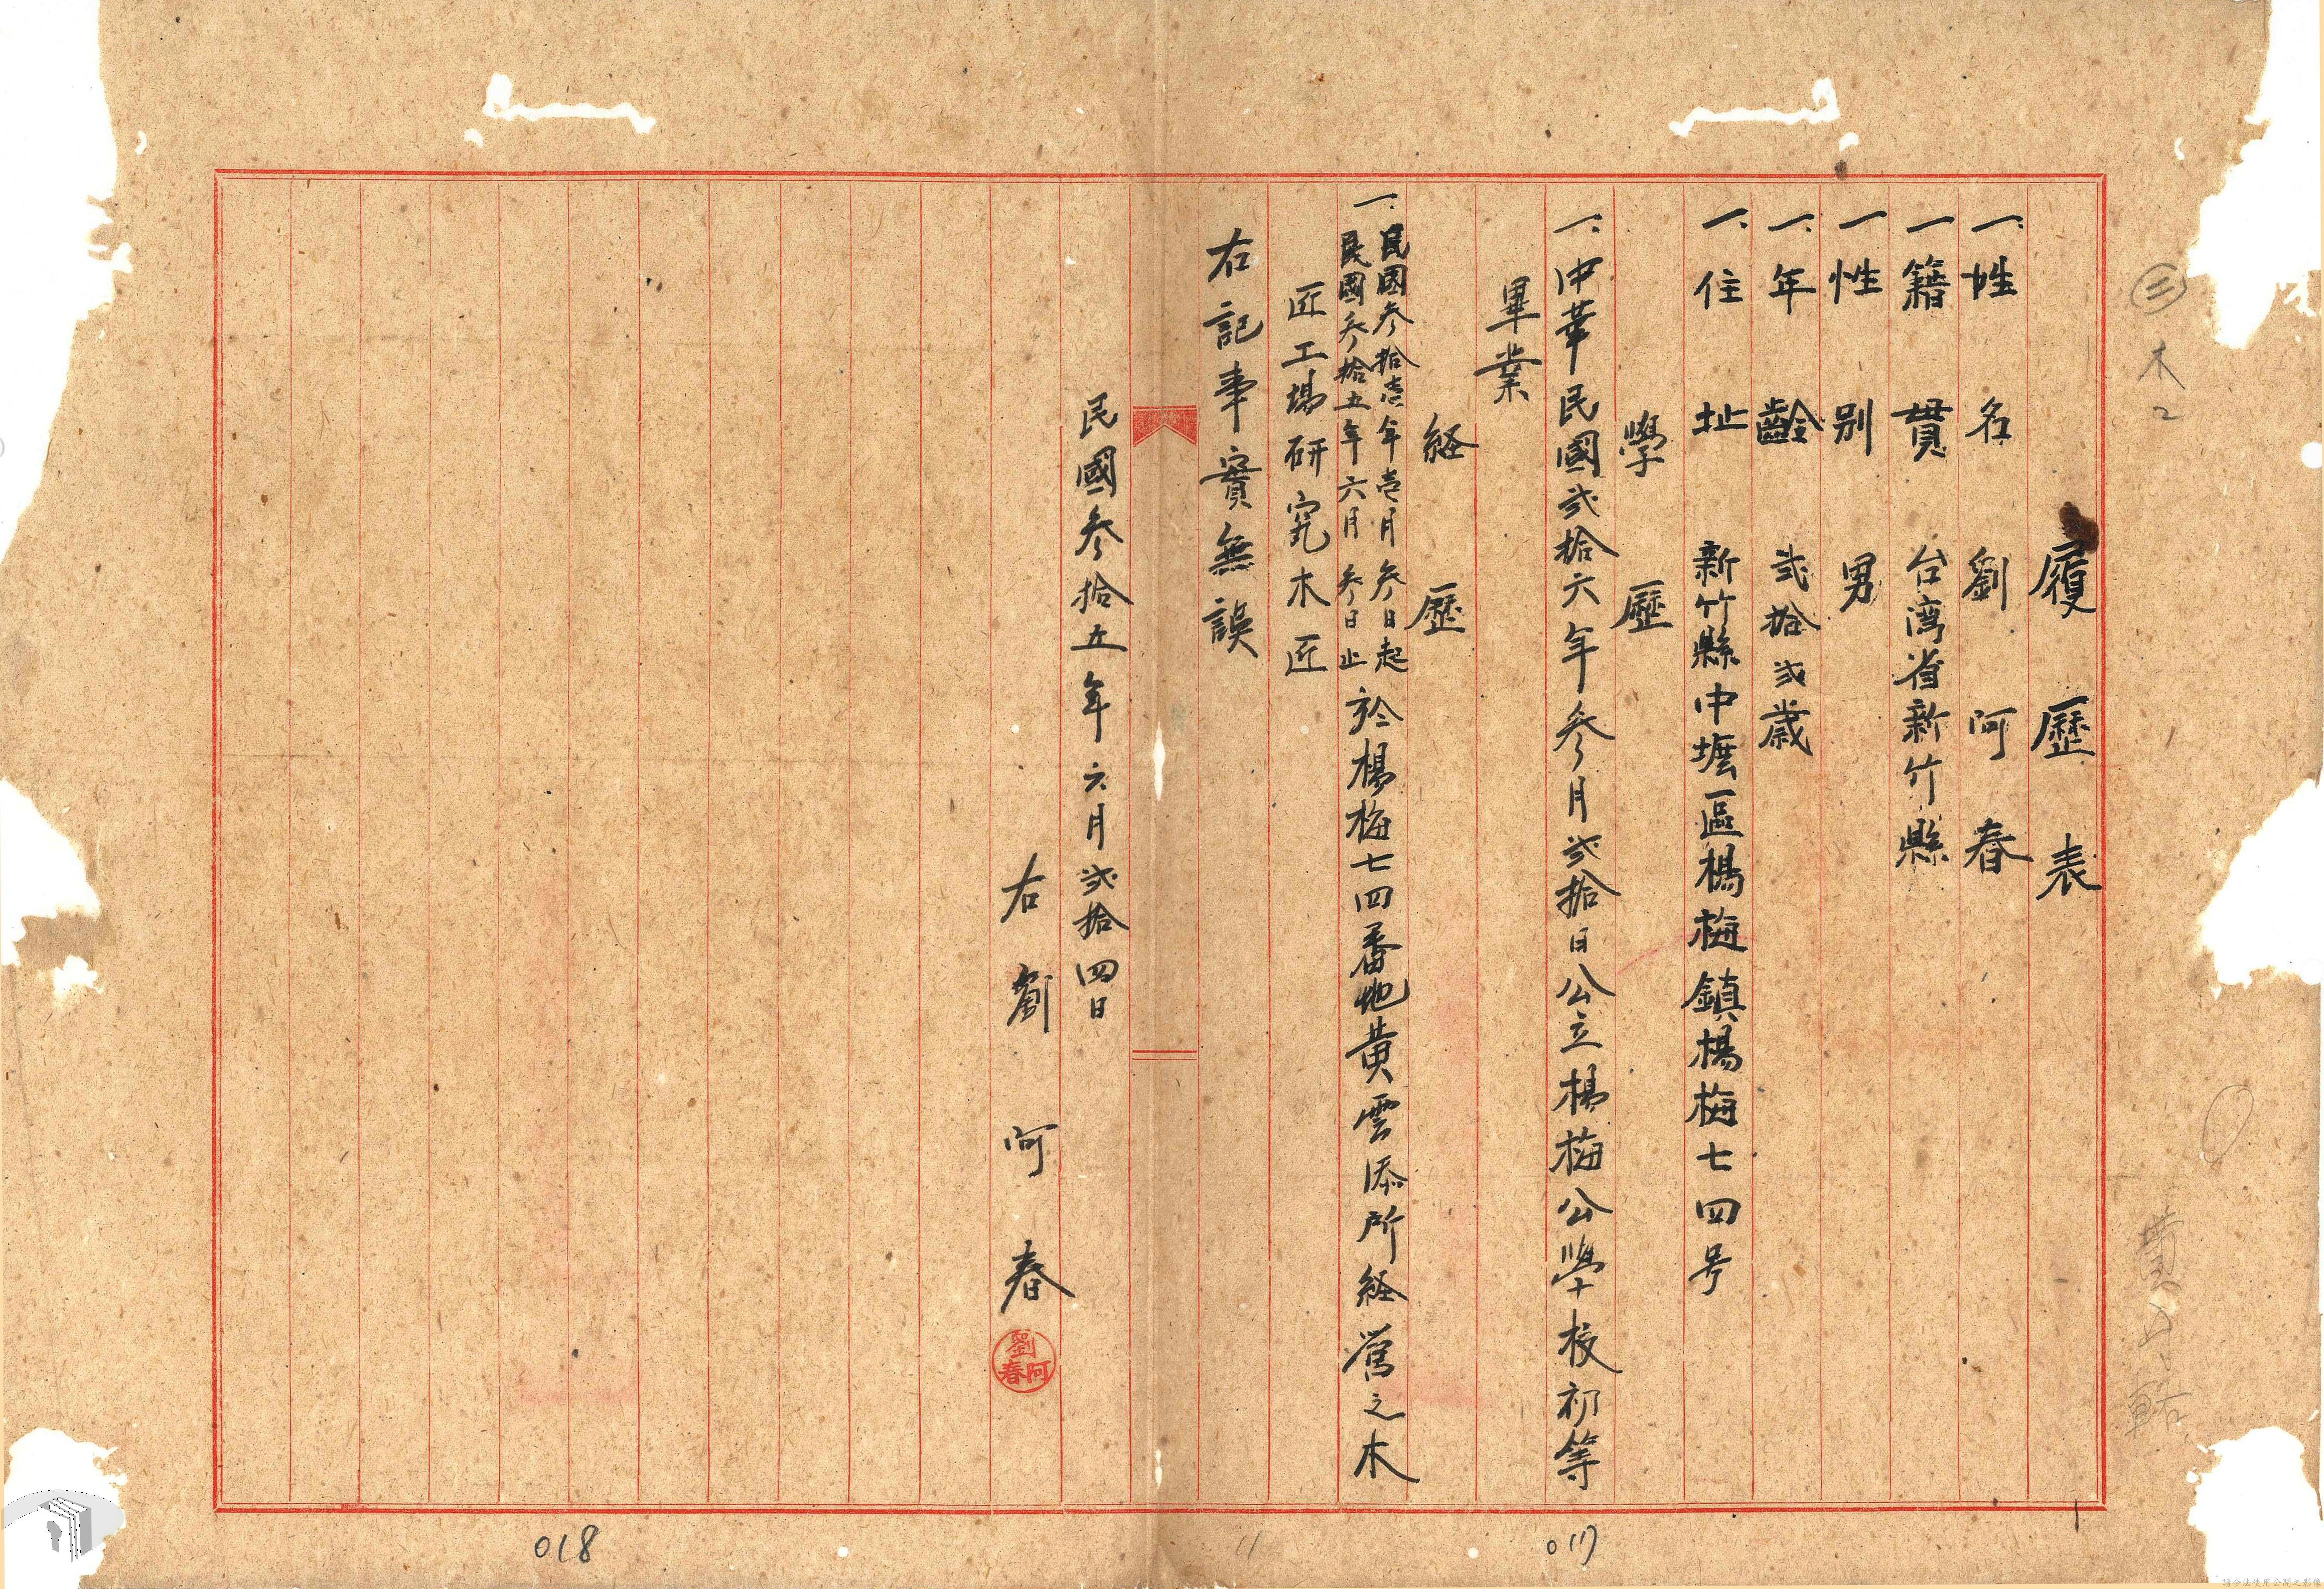 履歷表
一、姓名 劉阿春
一籍貫 台湾省新竹縣
一性别 男
一、年齡 貳拾貳歲
一、住址 新竹縣中壢區楊梅鎮楊梅七四号
學歷
一、中華民國貳拾六年參月貳拾日公立楊梅公學校初等
畢業
経歷
一、民國參拾壱年壱月參日起
民國參拾五年六月參日止
於楊梅七四番地黄雲添所経營之木
匠工場研究木匠
右記事實無誤
民國參拾五年六月貳拾四日
右 劉阿春
劉阿春
三
木
2
017
018
11